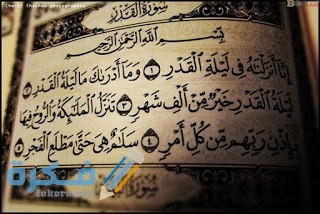 Cherif Chachou photographie
سُورَةُ القَدْرِ
بِسْمِ اللَّهِ الرَّحْمَٰنِ الرَّحِيمِ
إِنَّا أَنزَلْنَٰهُ فِى لَيْلَةِ ٱلْقَدْرِ ١ وَمَآ أَدْرَىٰكَ مَا لَيْلَةُ ٱلْقَدْرِ ٢
لَيْلَةُ ٱلْقَدْرِ خَيْرٌ مِّنْ أَلْفِ شَهْرٍ ٣ تَنَزَّلُ ٱلْمَلَٰٓئِكَةُ وَٱلرُّوحُ فِيهَا
بِإِذْنِ رَبِّهِم مِّن كُلِّ أَمْرٍ ٤ سَلَٰمٌ هِىَ حَتَّىٰ مَطْلَعِ ٱلْفَجْرِ ٥
فكرة
سُورَةُ